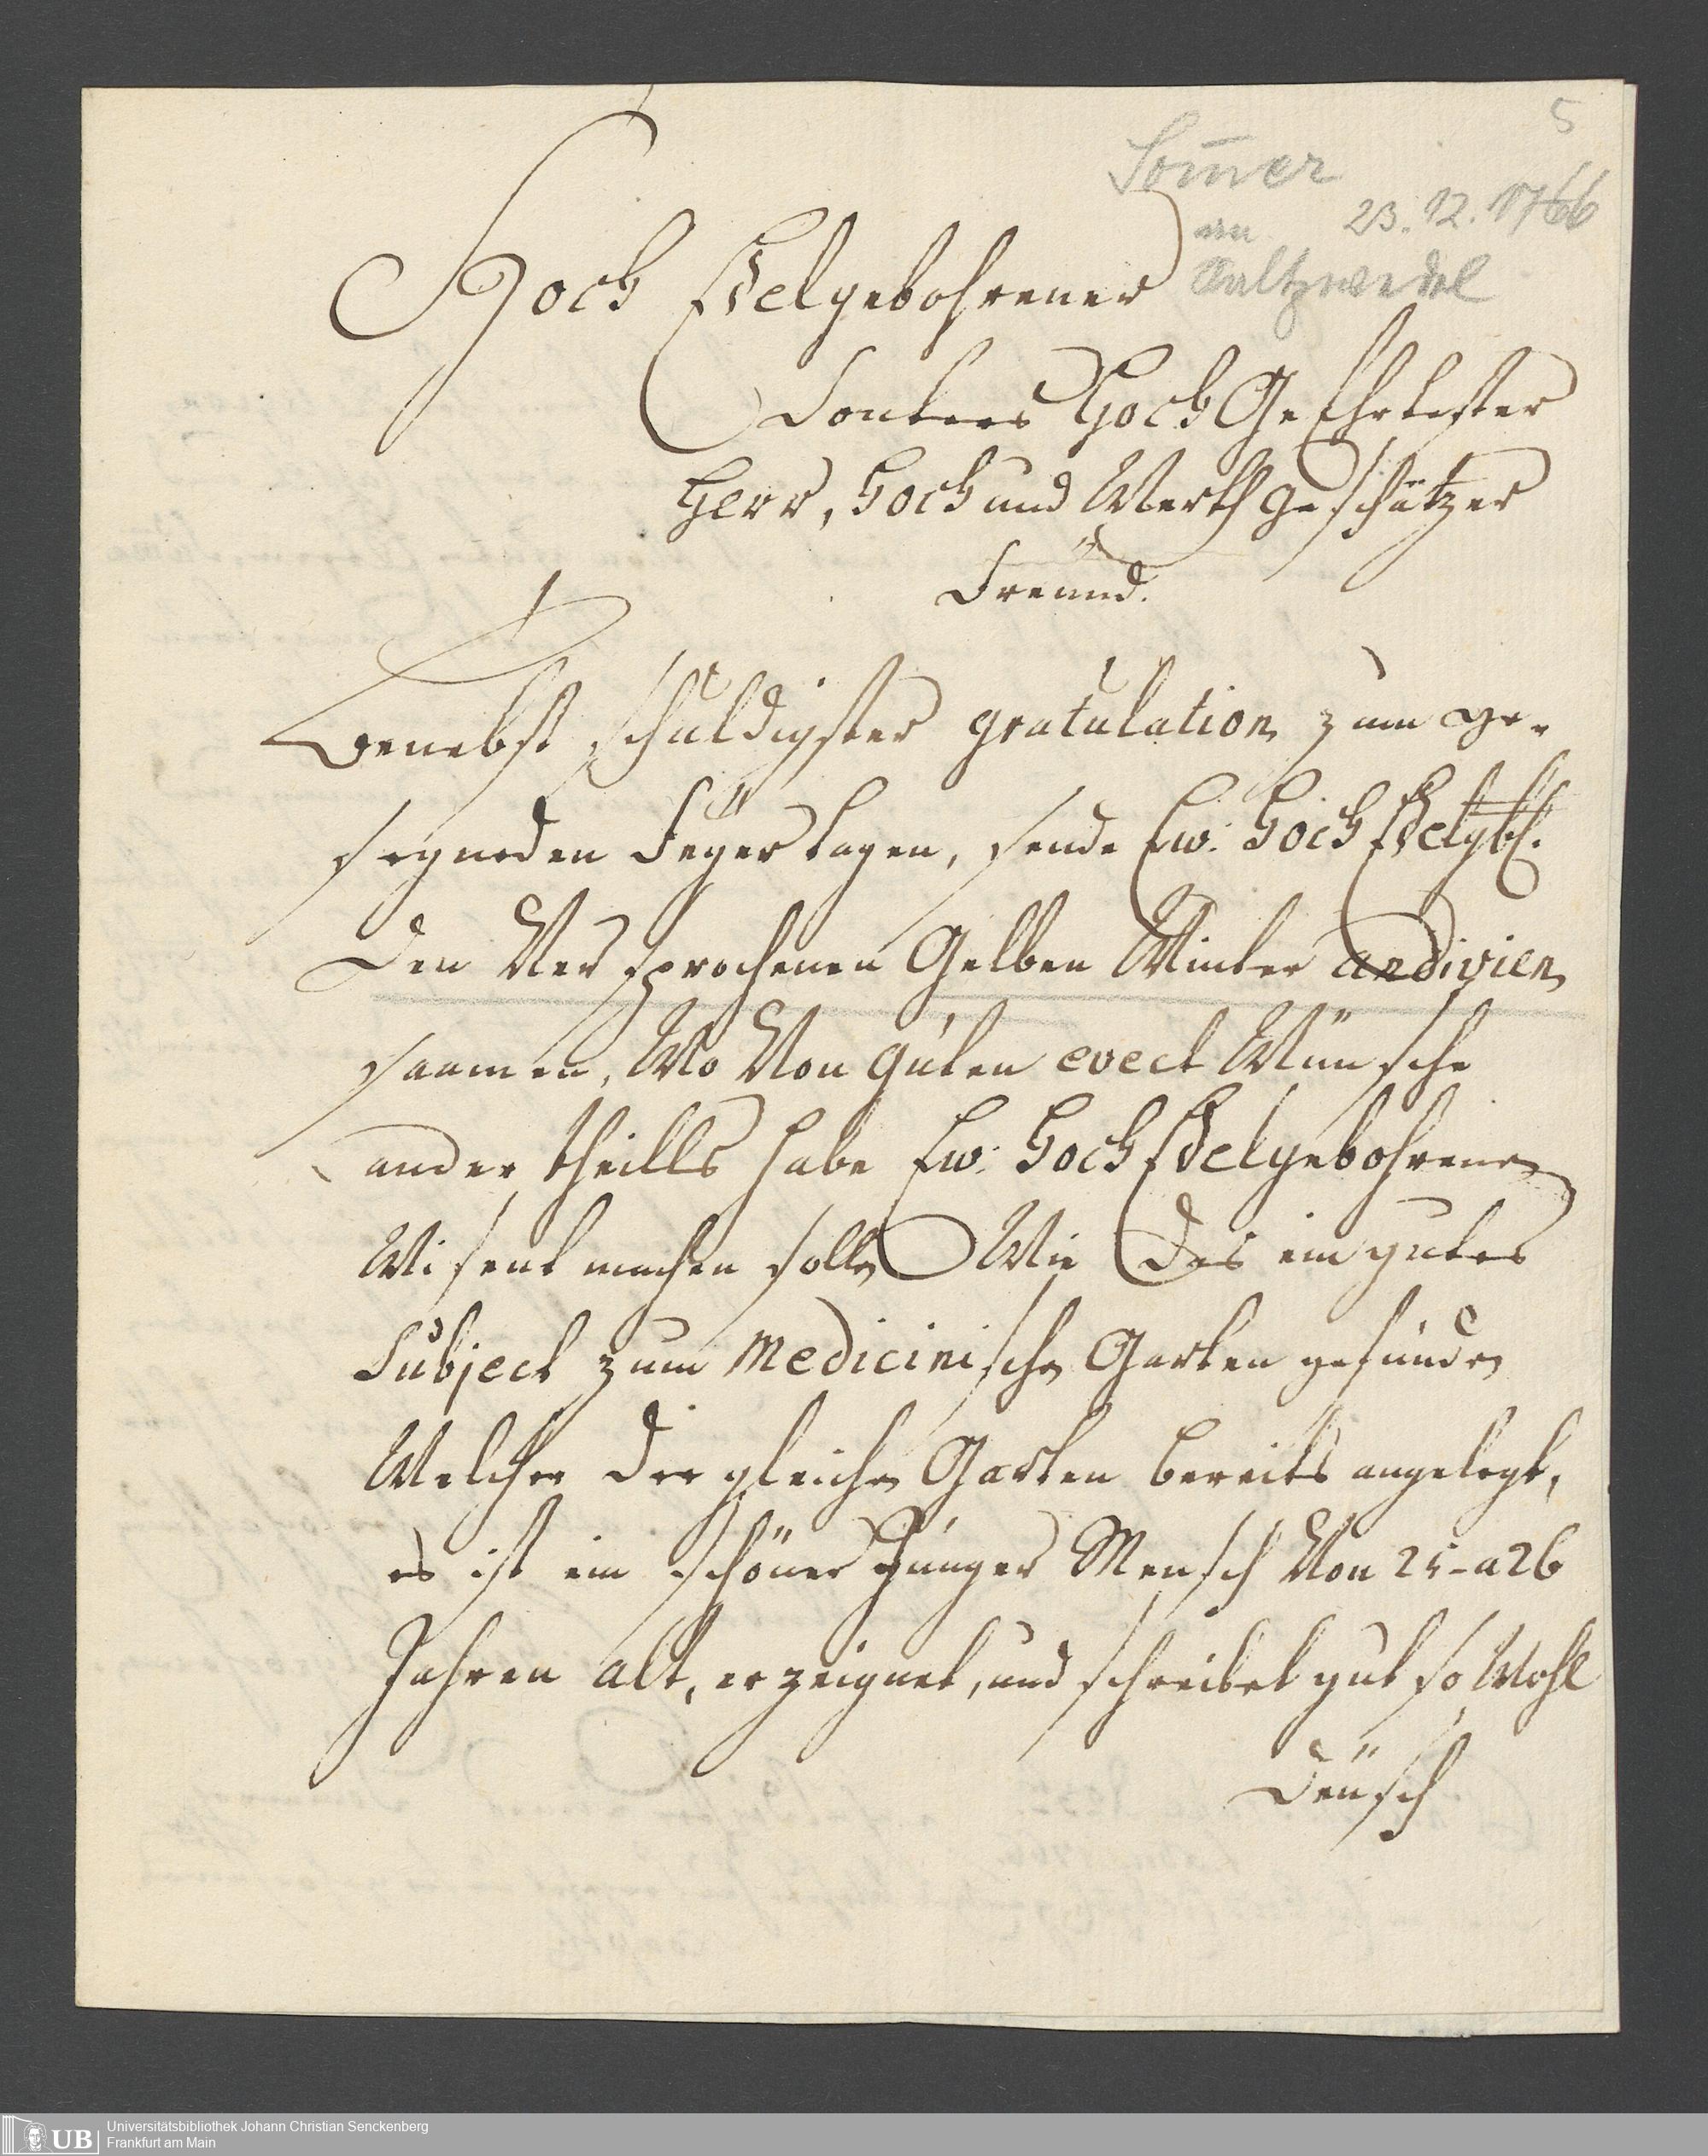 5
Som̄er
in 23.12.1766
Saltzwedel
Hoch Edelgebohrener
Sonders Hoch Ge Ehrtester
Herr, Hoch und Werth geschätzer
Freünd.
Benebst schuldigster gratulation zum ge-
segneden Feyer tagen, sende Ew: Hoch Edelgbh.
Den Versprochenen Gelben Winter andivien
saamen, Wo Von guten evect Wünsche
ander theills habe Ew: Hoch Edelgebohrenen
Wisent machen sollen Wie Das ein gutes
Subject zum Medicinischen Garten gefunden
Welcher der gleichen Garten bereits angelegt,
es ist ein schöner Junger Mensch Von 25-a 26
Jahren alt, er zeignet, und schreibet gut so Wohl
Deüsch
UB Universitätsbibliothek Johann Christian Senckenberg
Frankfurt am Main